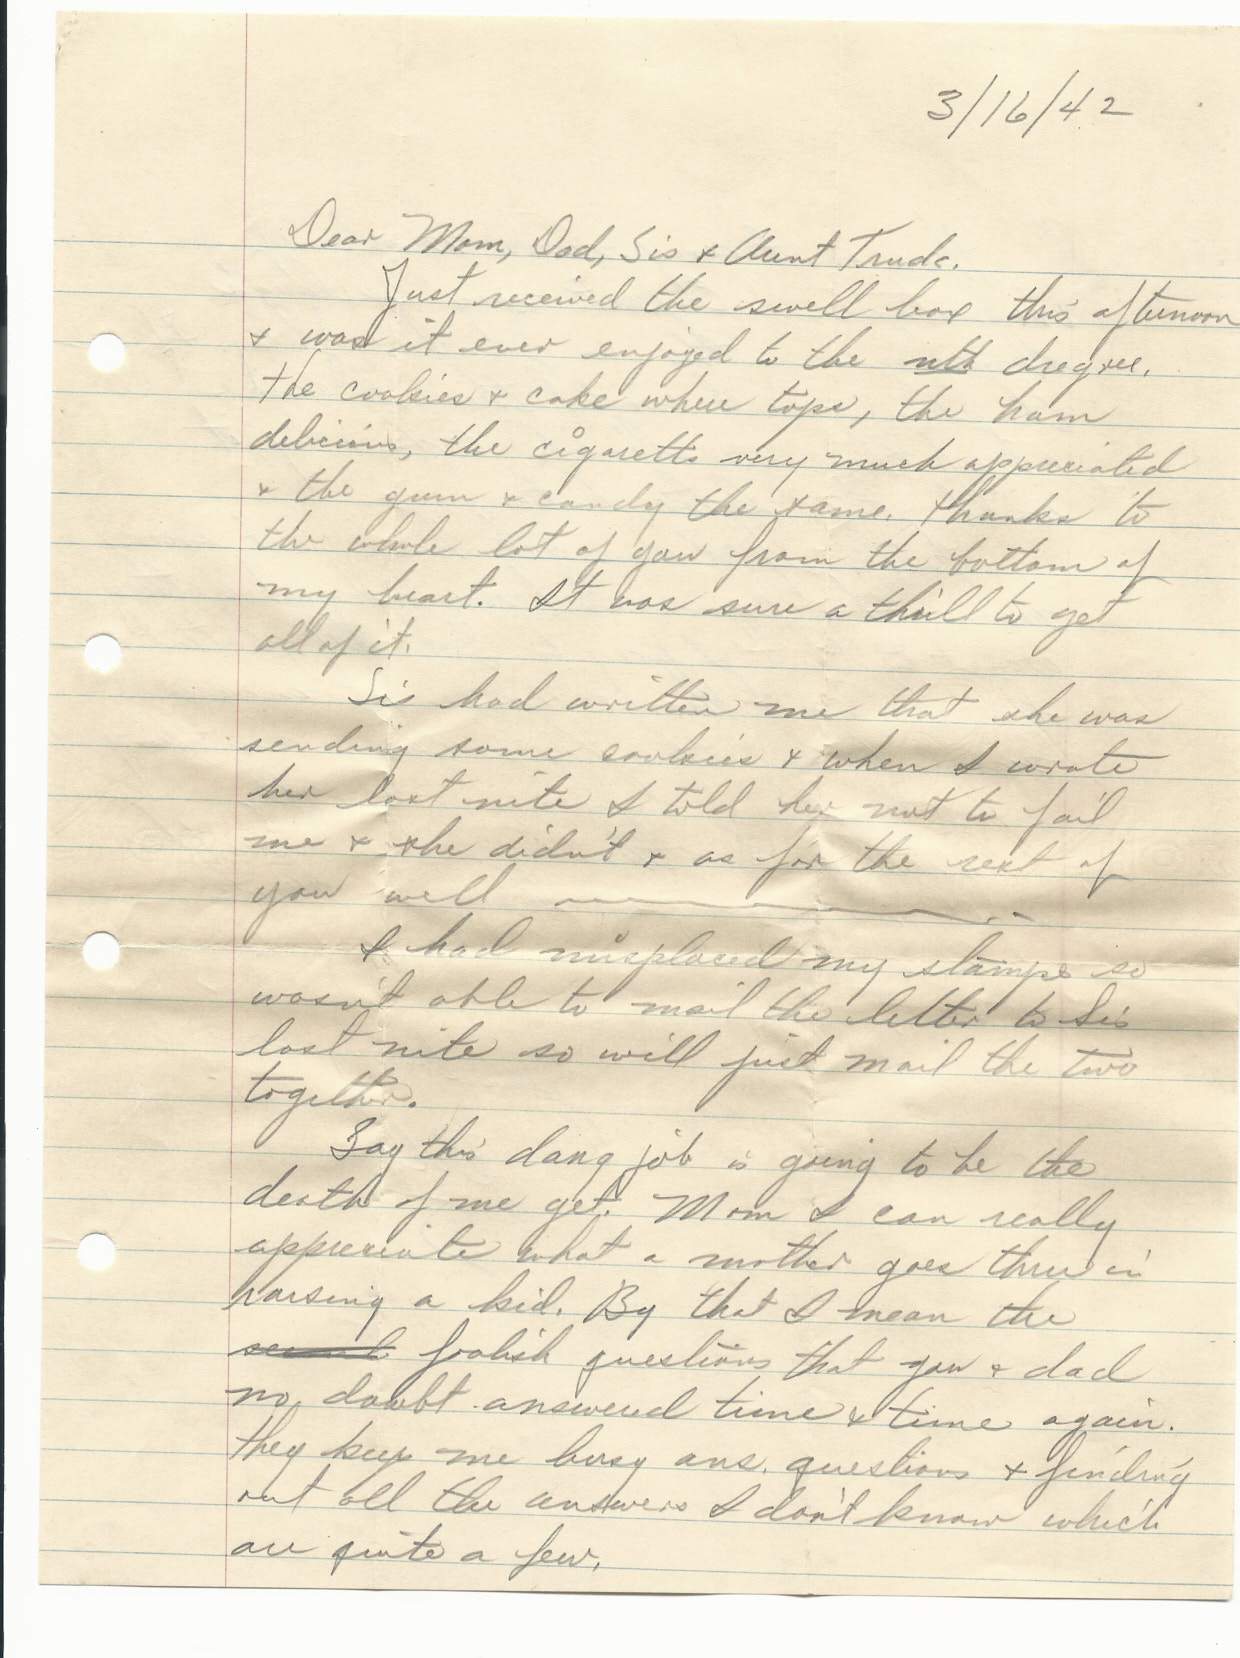 3/16/42
Dear Mom, Dad, Sis & Aunt Trude.
Just received the swell box this afternoon
& was it ever enjoyed to the nth dregree.
The cookies & cake where tops, the ham
delicious, the cigaretts very much appreciated
& the gum & candy the same. Thanks to
the whole lot of you from the bottom of
my heart. It was sure a thrill to get
all of it.
Sis had written me that she was
sending some cookies & when I wrote
her last nite I told her not to fail
me & she didn't & as for the rest of
you well
I had misplaced my stamps so
wasn't able to mail the letter to Sis
last nite so will just mail the two
together.
Say this dang job is going to be the
death of me yet. Mom I can really
appreciate what a mother goes thru in
raising a kid. By that I mean the
foolish questions that you & dad
no doubt answered time & time again.
They keep me busy ans. questions & finding
out all the answers I don't know which
are quite a few.